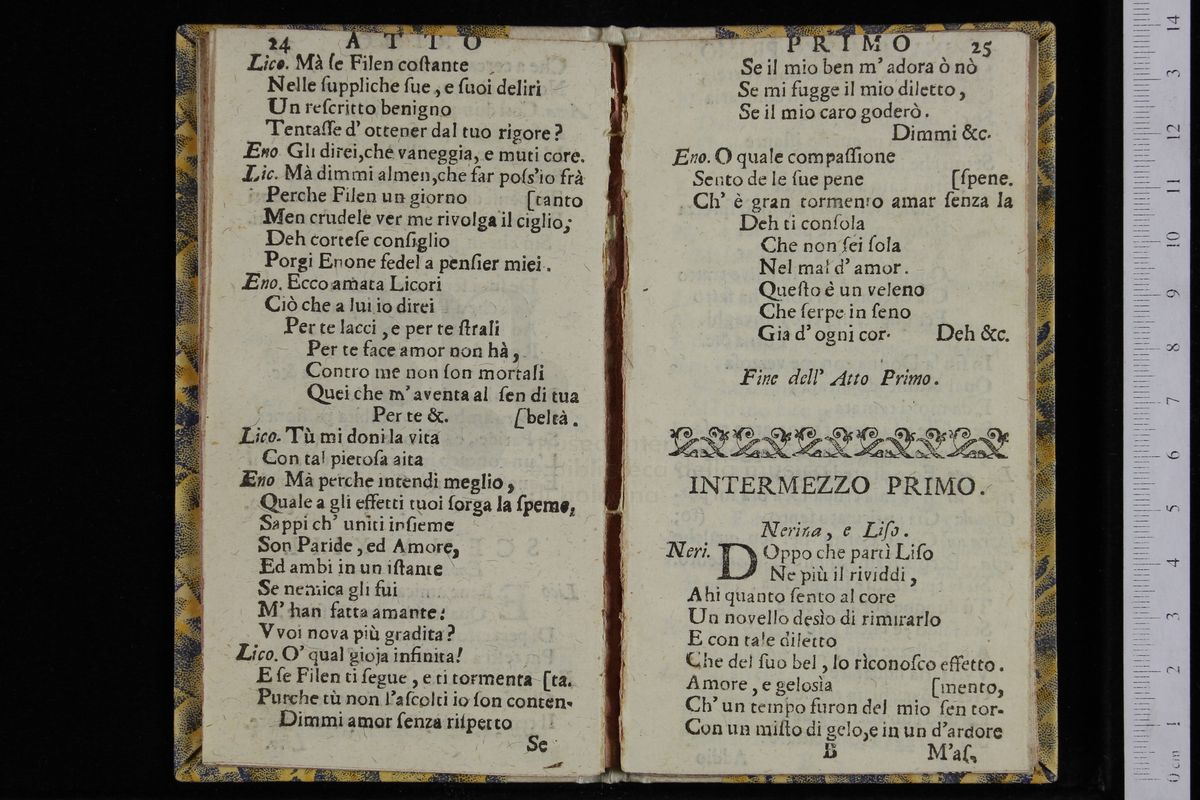 24 ATTO
Lico. Mà ſe Filen coſtante
Nelle ſuppliche ſue, e ſuoi deliri
Un reſcritto benigno
Tentaſſe d' ottener dal tuo rigore?
Eno Gli direi,che vaneggia, e muti core.
Lic. Mà dimmi almen,che far poſs'io frà
Perche Filen un giorno [tanto
Men crudele ver me rivolga il ciglio;
Deh corteſe conſiglio
Porgi Enone fedel a penſier miei.
Eno. Ecco amata Licori
Ciò che a lui io direi
Per te lacci, e per te ſtrali
Per te face amor non hà,
Contro me non ſon mortali
Quei che m'aventa al ſen di tua
Per te &. [beltà.
Lico. Tù mi doni la vita
Con tal pietoſa aita
Eno Mà perche intendi meglio,
Quale a gli effetti tuoi ſorga la ſpeme,
Sappi ch' uniti inſieme
Son Paride, ed Amore,
Ed ambi in un iſtante
Se nemica gli fui
M' han fatta amante:
Vvoi nova più gradita?
Lico. O' qual gioja infinita!
E ſe Filen ti ſegue, e ti tormenta [ta.
Purche tù non l'aſcolti io ſon conten-
Dimmi amor ſenza riſpetto
Se
PRIMO 25
Se il mio ben m' adora ò nò
Se mi fugge il mio diletto,
Se il mio caro goderò.
Dimmi &c.
Eno. O quale compaſſione
Sento de le ſue pene [ſpene.
Ch' è gran tormento amar ſenza la
Deh ti conſola
Che non ſei ſola
Nel mal d' amor.
Queſto è un veleno
Che ſerpe in ſeno
Gia d' ogni cor. Deh &c.
Fine dell' Atto Primo.
INTERMEZZO PRIMO.
Nerina, e Liſo.
Neri. DOppo che partì Liſo
Ne più il rividdi,
Ahi quanto ſento al core
Un novello desìo di rimirarlo
E con tale diletto
Che del ſuo bel, lo rìconoſco effetto.
Amore, e gelosìa [mento,
Ch' un tempo furon del mio ſen tor-
Con un miſto di gelo,e in un d'ardore
B M'aſ,